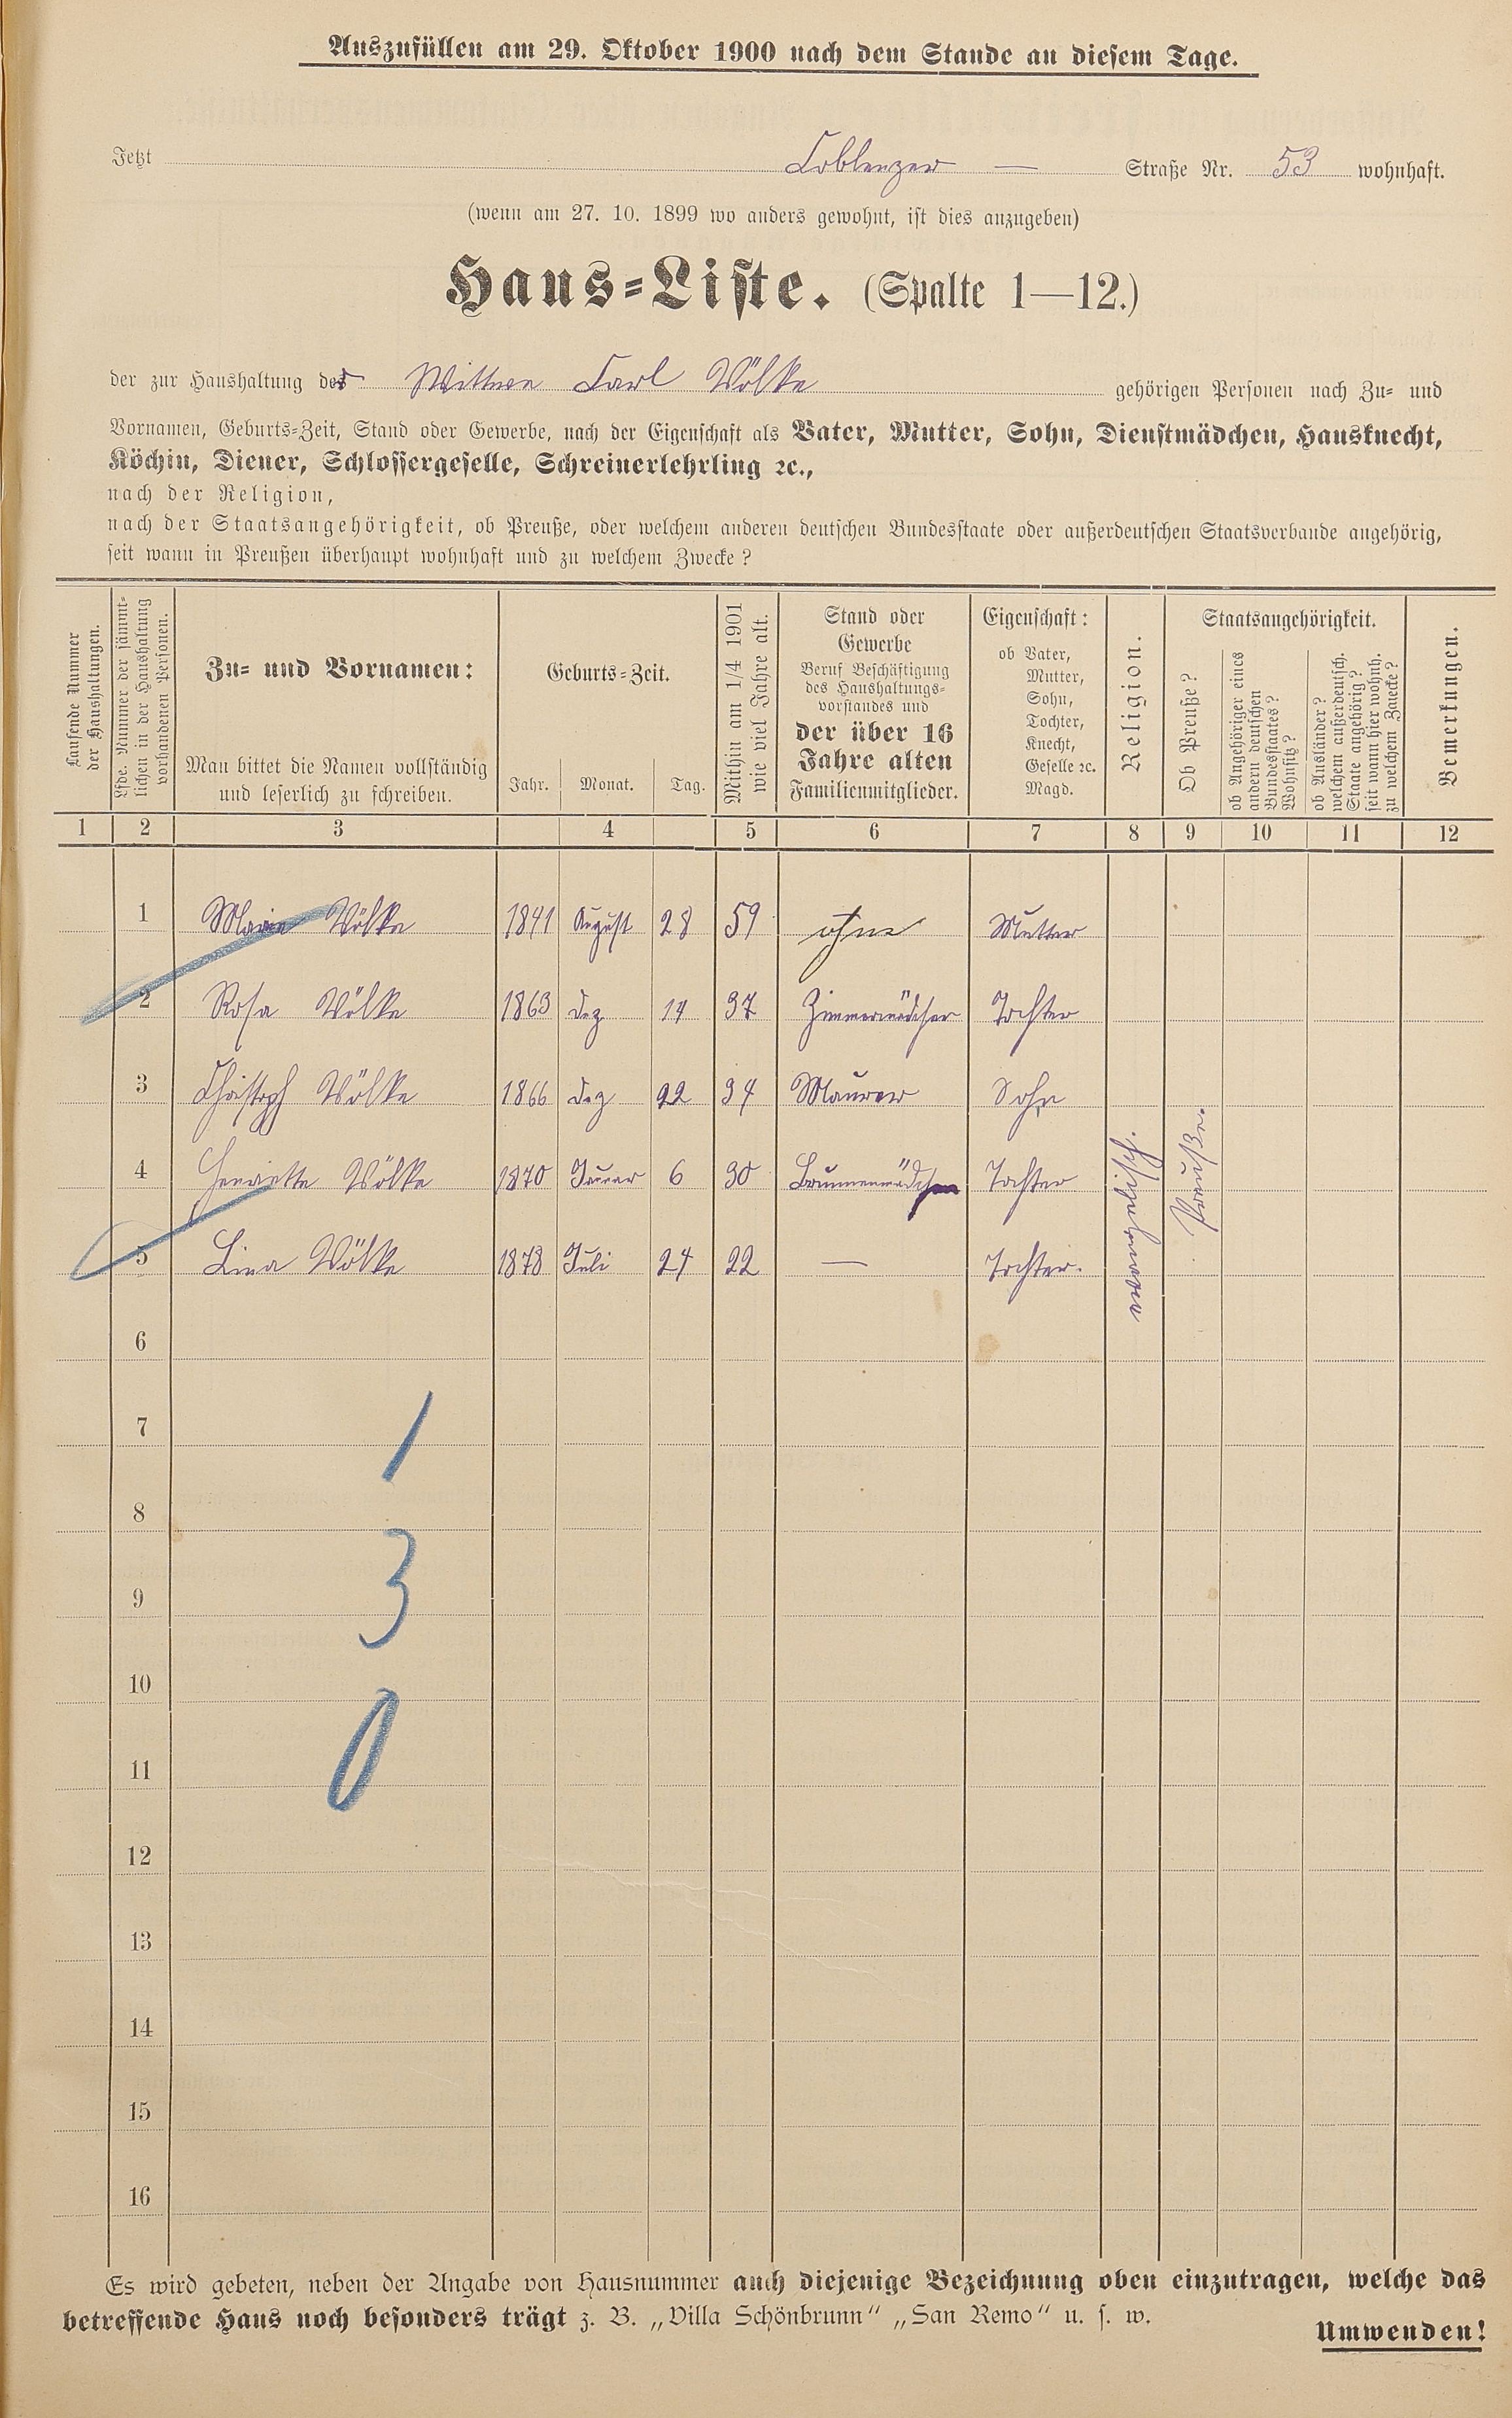 Auszufüllen am 29. Oktober 1900 nach dem Stande an diesem Tage.
Jetzt Coblenzer — Straße Nr. 53 wohnhaft.
(wenn am 27. 10. 1899 wo anders gewohnt, ist dies anzugeben)
Haus-Liste. (Spalte 1—12.)
der zur Haushaltung der Wittwe Carl Wölke gehörigen Personen nach Zu- und
Vornamen, Geburts-Zeit, Stand oder Gewerbe, nach der Eigenschaft als Vater, Mutter, Sohn, Dienstmädchen, Hausknecht,
Köchin, Diener, Schlossergeselle, Schreinerlehrling ꝛc.,
nach der Religion,
nach der Staatsangehörigkeit, ob Preuße, oder welchem anderen deutschen Bundesstaate oder außerdeutschen Staatsverbande angehörig,
seit wann in Preußen überhaupt wohnhaft und zu welchem Zwecke?
Laufende Nummer
der Haushaltungen.
Lfde. Nummer der sämmt-
lichen in der Haushaltung
vorhandenen Personen.
Zu- und Vornamen:
Man bittet die Namen vollständig
und leserlich zu schreiben.
Geburts-Zeit.
Jahr. Monat. Tag.
Mithin am 1/4 1901
wie viel Jahre alt.
Stand oder
Gewerbe
Beruf Beschäftigung
des Haushaltungs-
vorstandes und
der über 16
Jahre alten
Familienmitglieder.
Eigenschaft:
ob Vater,
Mutter,
Sohn,
Tochter,
Knecht,
Geselle ꝛc.
Magd.
Religion.
Staatsangehörigkeit.
Ob Preuße?
ob Angehöriger eines
andern deutschen
Bundesstaates?
Wohnsitz?
ob Ausländer?
welchem außerdeutsch.
Staate angehörig?
seit wann hier wohnh.
zu welchem Zwecke?
Bemerkungen.
1 2 3 4 5 6 7 8 9 10 11 12
1 Maria Wölke 1841 August 28 59 ohne Mutter
2 Rosa Wölke 1863 Dez 14 37 Zimmermädchen Tochter
3 Christoph Wölke 1866 Dez 22 34 Maurer Sohn
4 Henriette Wölke 1870 Januar 6 30 Brunnenmädchen Tochter
5 Lina Wölke 1878 Juli 24 22 — Tochter.
evangelisch.
Preuße.
6
7
1
8
3
9
10
0
11
12
13
14
15
16
Es wird gebeten, neben der Angabe von Hausnummer auch diejenige Bezeichnung oben einzutragen, welche das
betreffende Haus noch besonders trägt z. B. „Villa Schönbrunn" „San Remo" u. s. w.
Umwenden!